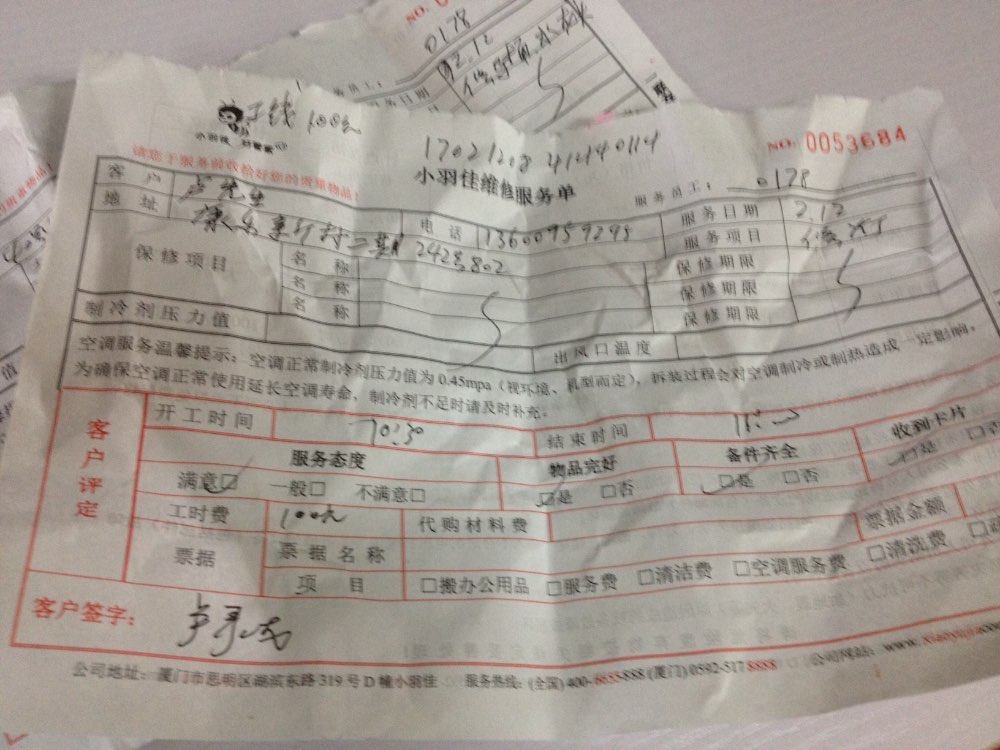 0178
2.12
100元
小羽佳 好管家
17021208 41414 0114
NO. 0053684
请您于服务前收拾好您的贵重物品!
小羽佳维修服务单
服务员工: 0178
客户 卢先生 电话 13600959295 服务日期 2.12
地址 康乐新村二期 242号802 服务项目 修灯
保修项目 名称 保修期限
名称 保修期限
名称 保修期限
制冷剂压力值 出风口温度
空调服务温馨提示:空调正常制冷剂压力值为 0.45mpa(视环境、机型而定),拆装过程会对空调制冷或制热造成一定影响,
为确保空调正常使用延长空调寿命,制冷剂不足时请及时补充。
客户评定
开工时间 10:30 结束时间
服务态度 物品完好 备件齐全 收到卡片
满意□ 一般□ 不满意□ □是 □否 □是 □否 □是 □否
工时费 100元 代购材料费 票据金额
票据 票据名称
项目 □搬办公用品 □服务费 □清洁费 □空调服务费 □清洗费
客户签字:
公司地址:厦门市思明区湖滨东路 319 号 D 幢小羽佳 服务热线:(全国) 400-6655-888 (厦门) 0592-517 8888 公司网站:www.xiaoyujia